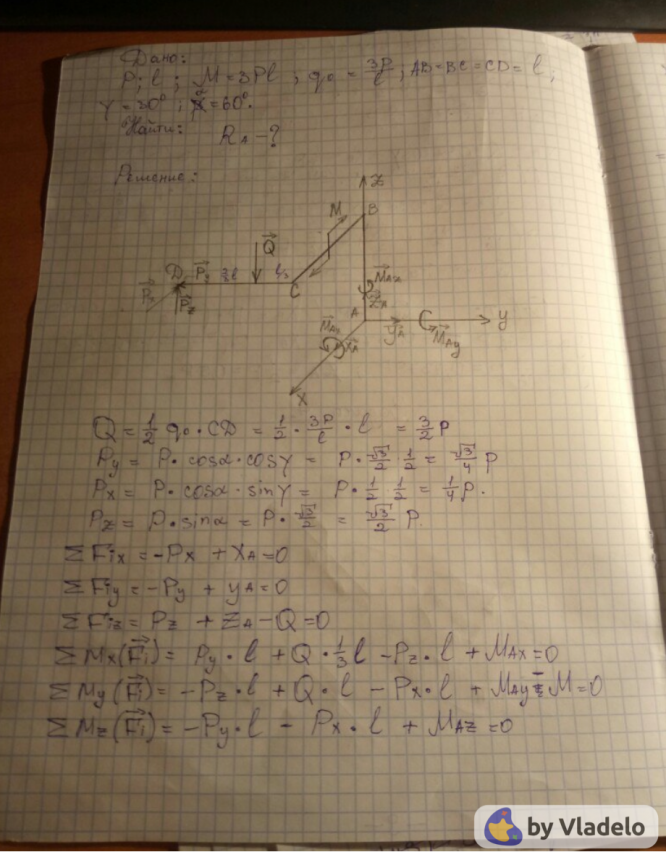 Дано:
P; l; M = 3Pl; q₀ = 3P/l; AB=BC=CD=l;
γ = 30°; α = 60°.
Найти: R_A - ?
Решение:
Z
M
B
Q⃗
D
P⃗
C
P⃗_z
A
M⃗_Ay
y⃗_A
y
X
Q = 1/2 q₀ · CD = 1/2 · 3P/l · l = 3/2 P
P_y = P · cosα · cosγ = P · √3/2 · 1/2 = √3/4 P
P_x = P · cosα · sinγ = P · 1/2 · 1/2 = 1/4 P.
P_z = P · sinα = P · √3/2 = √3/2 P.
ΣF_ix = -P_x + X_A = 0
ΣF_iy = -P_y + y_A = 0
ΣF_iz = P_z + Z_A - Q = 0
ΣM_x(F⃗_i) = P_y · l + Q · 1/3 l - P_z · l + M_Ax = 0
ΣM_y(F⃗_i) = -P_z · l + Q · l - P_x · l + M_Ay - M = 0
ΣM_z(F⃗_i) = -P_y · l - P_x · l + M_Az = 0
by Vladelo